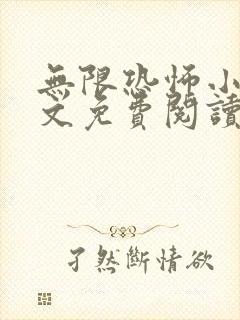 無限恐怖小
文免費閱讀
孑然斷情欲